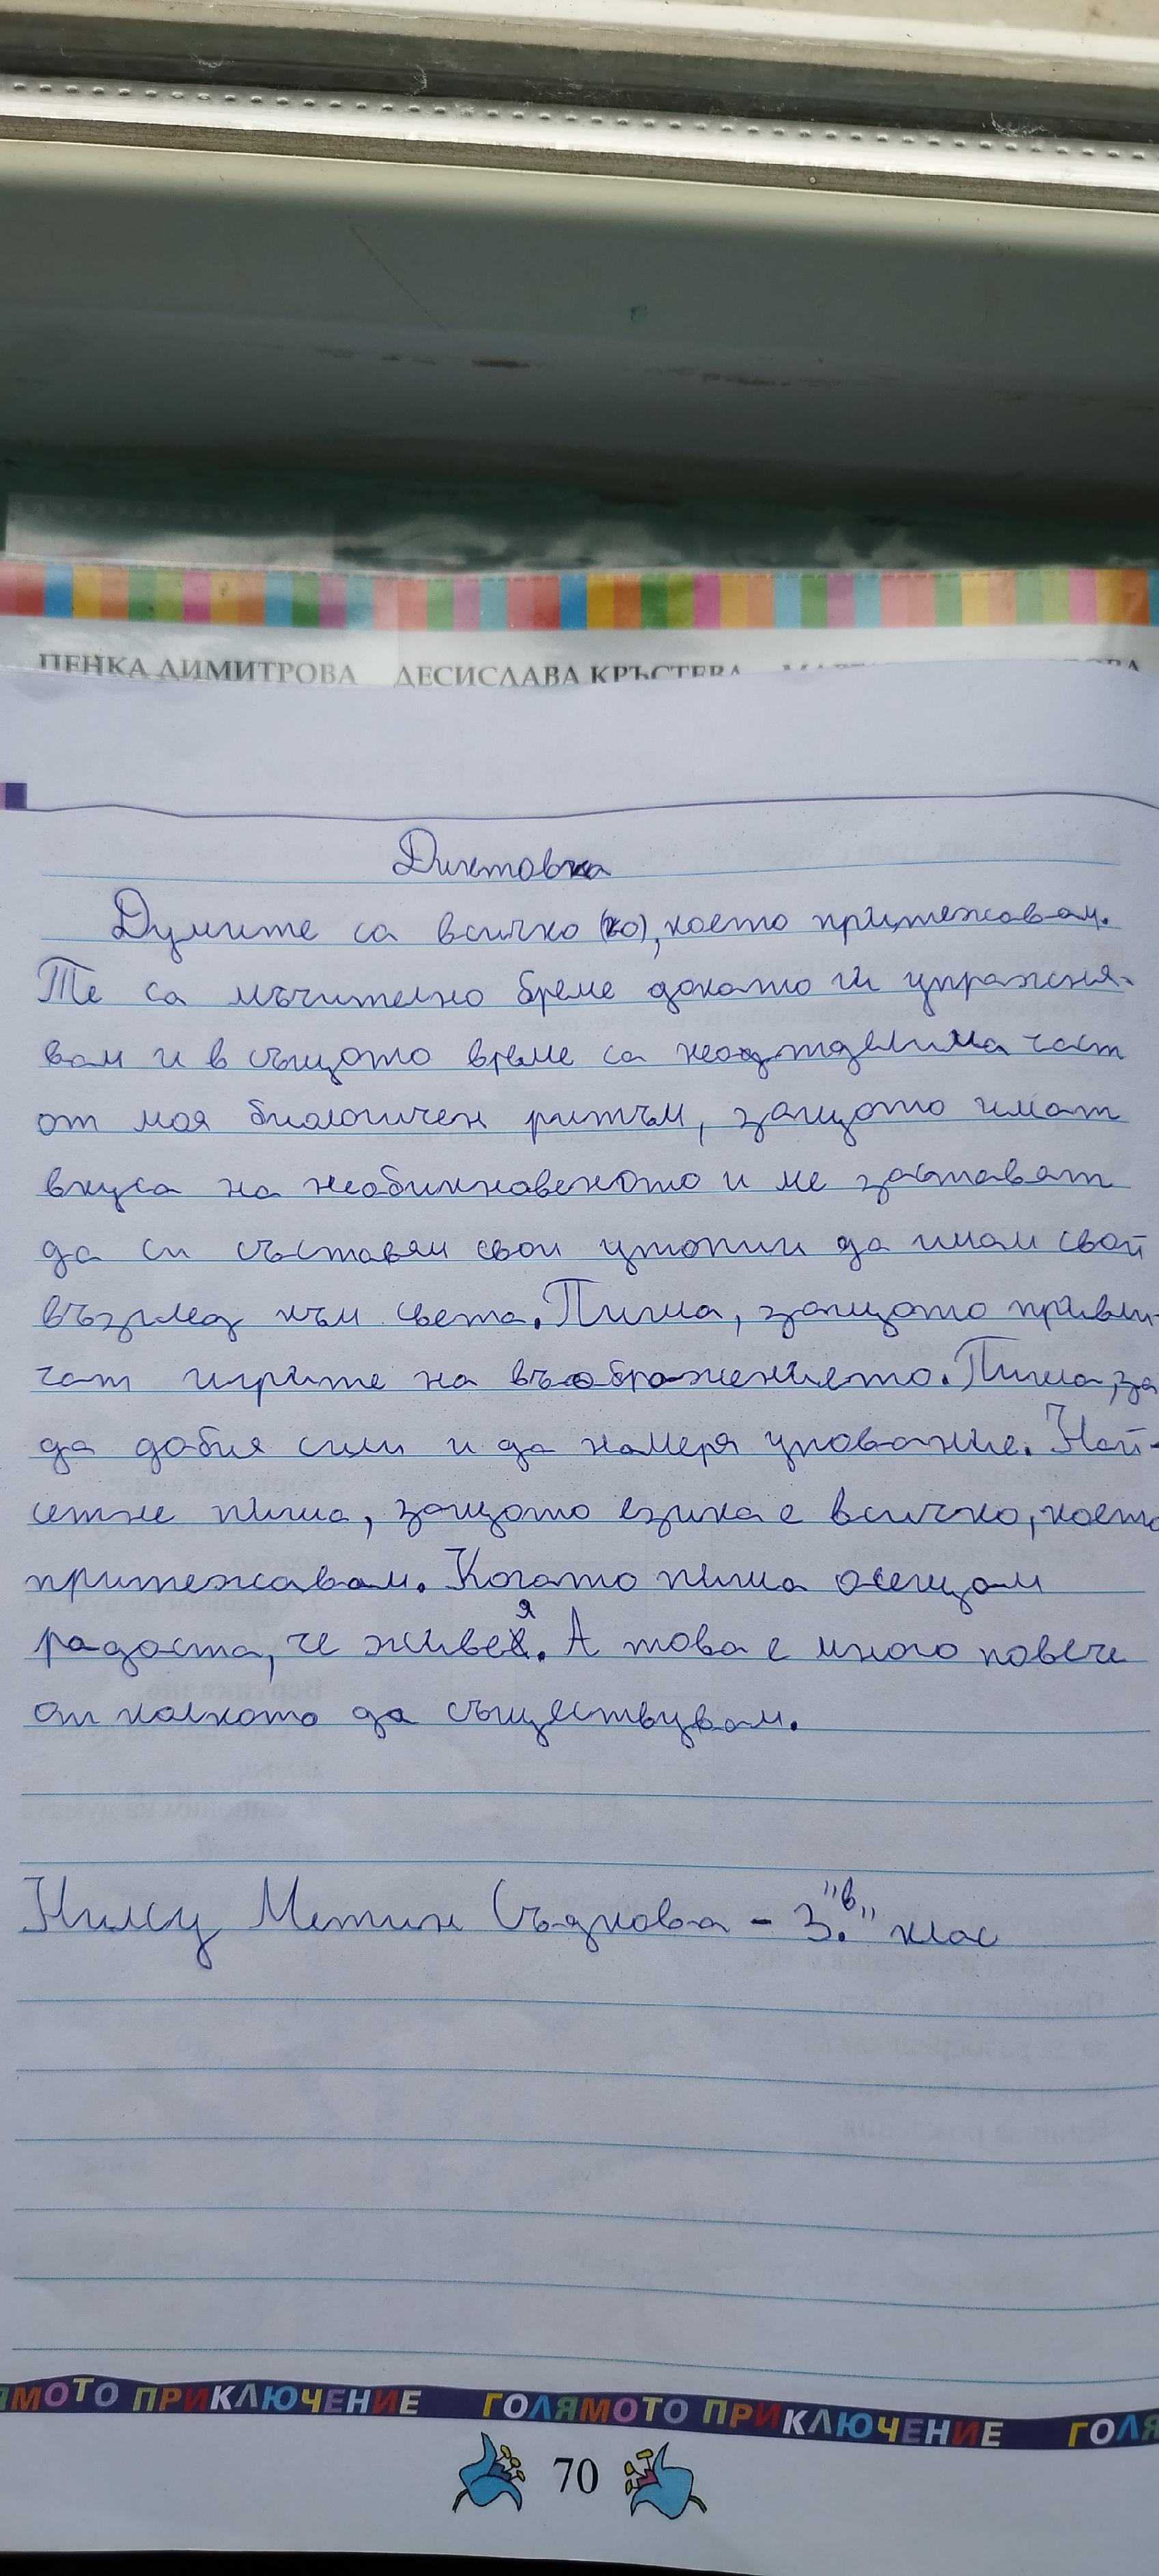 ПЕНКА ДИМИТРОВА ДЕСИСЛАВА КРЪСТЕВА
Диктовка
Думите са всичко (ко), което притежавам.
Те са мъчително бреме докато ги упражня-
вам и в същото време са неотделима част
от моя биологичен ритъм, защото имат
вкуса на необикновеното и ме заставят
да си съставям свои утопии да имам свой
възглед към света. Пиша, защото привли-
чат игрите на въображението. Пиша, за
да добия сили и да намеря упование. Най-
сетне пиша, защото езика е всичко, което
притежавам. Когато пиша осещам
радоста, че живея. А това е много повече
от колкото да съществувам.
Нилсу Метин Съдкова - 3. "в" клас
ЯМОТО ПРИКЛЮЧЕНИЕ ГОЛЯМОТО ПРИКЛЮЧЕНИЕ ГОЛЯ
70